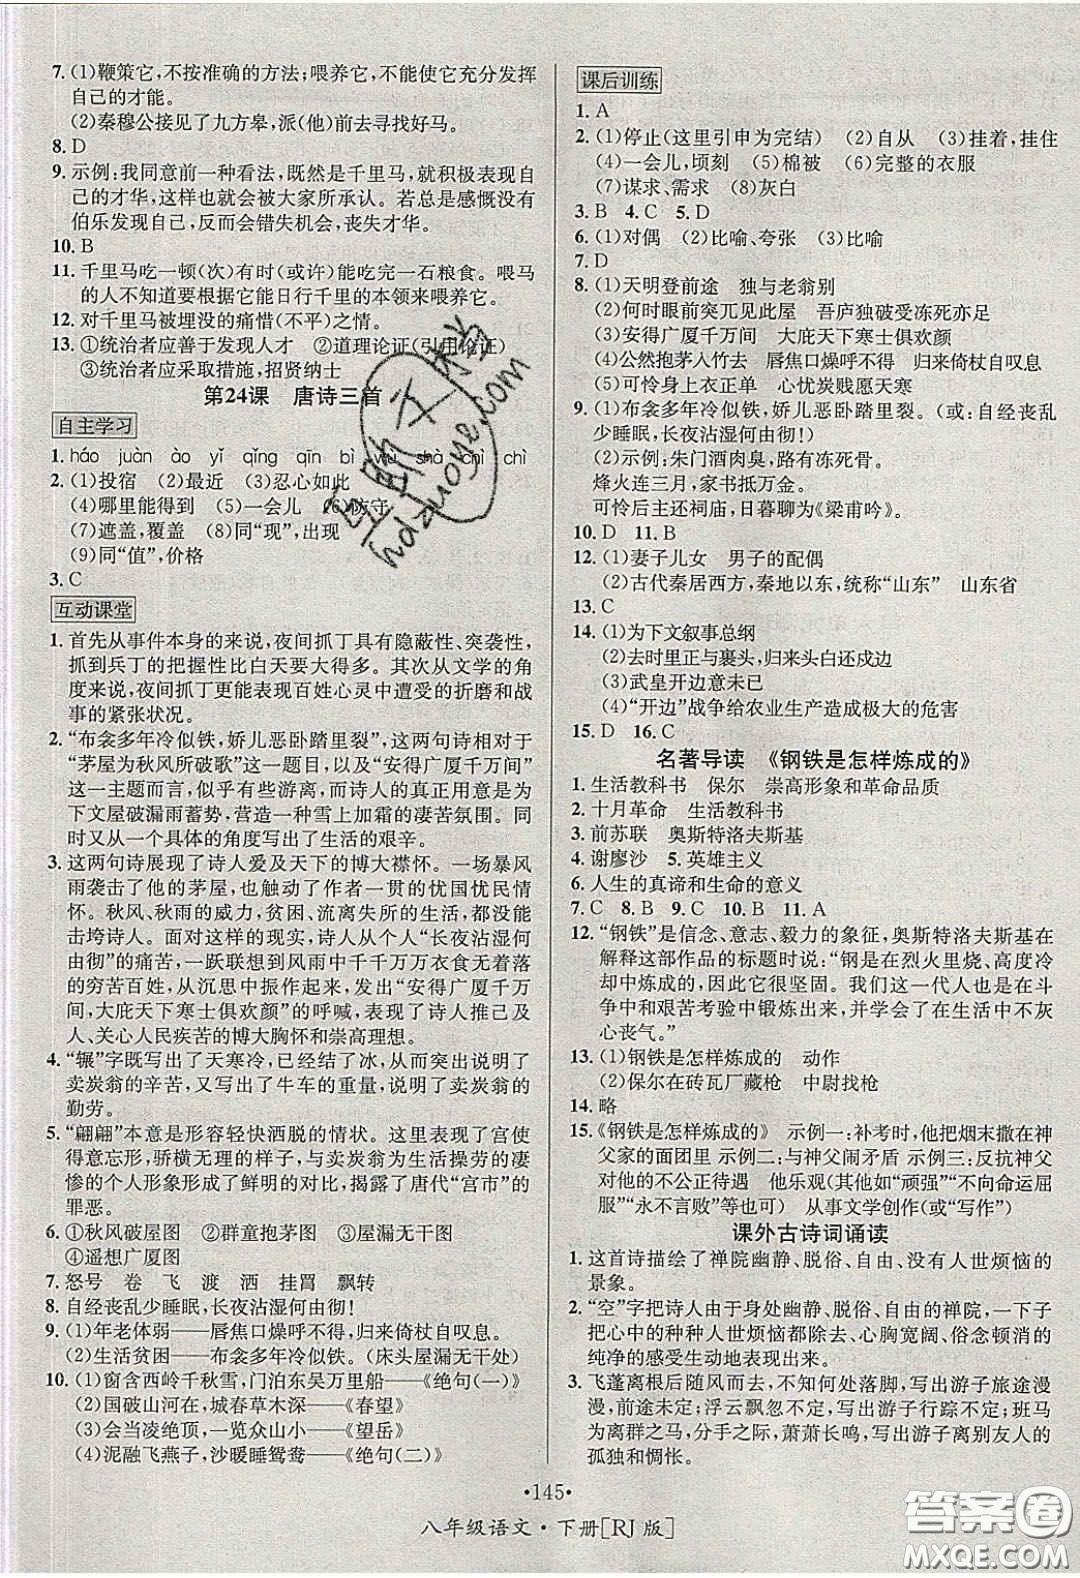 7. (1)鞭策它,不按准确的方法;喂养它,不能使它充分发挥
自己的才能。
(2)秦穆公接见了九方皋,派(他)前去寻找好马。
8. D
9. 示例:我同意前一种看法,既然是千里马,就积极表现自
己的才华,这样也就会被大家所承认。若总是感慨没有
伯乐发现自己,反而会错失机会,丧失才华。
10. B
11. 千里马吃一顿(次)有时(或许)能吃完一石粮食。喂马
的人不知道要根据它能日行千里的本领来喂养它。
12. 对千里马被埋没的痛惜(不平)之情。
13. ①统治者应善于发现人才 ②道理论证(引用论证)
③统治者应采取措施,招贤纳士
第24课 唐诗三首
自主学习
1. háo juàn ào yǐ qǐng qīn bì wū shà chì chì
2. (1)投宿 (2)最近 (3)忍心如此
(4)哪里能得到 (5)一会儿 (6)防守
(7)遮盖,覆盖 (8)同“现”,出现
(9)同“值”,价格
3. C
互动课堂
1. 首先从事件本身的来说,夜间抓丁具有隐蔽性、突袭性,
抓到兵丁的把握性比白天要大得多。其次从文学的角
度来说,夜间抓丁更能表现百姓心灵中遭受的折磨和战
事的紧张状况。
2. “布衾多年冷似铁,娇儿恶卧踏里裂”,这两句诗相对于
“茅屋为秋风所破歌”这一题目,以及“安得广厦千万间”
这一主题而言,似乎有些游离。而诗人的真正用意是为
下文屋破漏雨蓄势,营造一种雪上加霜的凄苦氛围。同
时又从一个具体的角度写出了生活的艰辛。
3. 这两句诗展现了诗人爱及天下的博大襟怀。一场暴风
雨袭击了他的茅屋,也触动了作者一贯的忧国忧民情
怀。秋风、秋雨的威力,贫困、流离失所的生活,都没能
击垮诗人。面对这样的现实,诗人从个人“长夜沾湿何
由彻”的痛苦,一跃联想到风雨中千千万万衣食无着落
的穷苦百姓,从沉思中振作起来,发出“安得广厦千万间,
大庇天下寒士俱欢颜”的呼喊,表现了诗人推己及
人、关心人民疾苦的博大胸怀和崇高理想。
4. “辗”字既写出了天寒冷,已经结了冰,从而突出说明了
卖炭翁的辛苦,又写出了牛车的重量,说明了卖炭翁的
勤劳。
5. “翩翩”本意是形容轻快洒脱的情状。这里表现了宫使
得意忘形,骄横无理的样子,与卖炭翁为生活操劳的凄
惨的个人形象形成了鲜明的对比,揭露了唐代“宫市”的
罪恶。
6. ①秋风破屋图 ②群童抱茅图 ③屋漏无干图
④遥想广厦图
7. 怒号 卷 飞 渡 洒 挂罥 飘转
8. 自经丧乱少睡眠,长夜沾湿何由彻!
9. (1)年老体弱——唇焦口燥呼不得,归来倚杖自叹息。
(2)生活贫困——布衾多年冷似铁。(床头屋漏无干处)
10. (1)窗含西岭千秋雪,门泊东吴万里船——《绝句(一)》
(2)国破山河在,城春草木深——《春望》
(3)会当凌绝顶,一览众山小——《望岳》
(4)泥融飞燕子,沙暖睡鸳鸯——《绝句(二)》
课后训练
1. A
2. (1)停止(这里引申为完结) (2)自从 (3)挂着,挂住
(4)一会儿,顷刻 (5)棉被 (6)完整的衣服
(7)谋求、需求 (8)灰白
3. B 4. C 5. D
6. (1)对偶 (2)比喻、夸张 (3)比喻
7. D
8. (1)天明登前途 独与老翁别
(2)何时眼前突兀见此屋 吾庐独破受冻死亦足
(3)安得广厦千万间 大庇天下寒士俱欢颜
(4)公然抱茅入竹去 唇焦口燥呼不得 归来倚杖自叹息
(5)可怜身上衣正单 心忧炭贱愿天寒
9. (1)布衾多年冷似铁,娇儿恶卧踏里裂。(或:自经丧乱
少睡眠,长夜沾湿何由彻!)
(2)示例:朱门酒肉臭,路有冻死骨。
烽火连三月,家书抵万金。
可怜后主还祠庙,日暮聊为《梁甫吟》。
10. D 11. B
12. (1)妻子儿女 男子的配偶
(2)古代秦居西方,秦地以东,统称“山东” 山东省
13. C
14. (1)为下文叙事总纲
(2)去时里正与裹头,归来头白还戍边
(3)武皇开边意未已
(4)“开边”战争给农业生产造成极大的危害
15. D 16. C
名著导读 《钢铁是怎样炼成的》
1. 生活教科书 保尔 崇高形象和革命品质
2. 十月革命 生活教科书
3. 前苏联 奥斯特洛夫斯基
4. 谢廖沙 5. 英雄主义
6. 人生的真谛和生命的意义
7. C 8. B 9. C 10. B 11. A
12. “钢铁”是信念、意志、毅力的象征,奥斯特洛夫斯基在
解释这部作品的标题时说:“钢是在烈火里烧、高度冷
却中炼成的,因此它很坚固。我们这一代人也是在斗
争中和艰苦考验中锻炼出来的,并学会了在生活中不灰
心丧气。”
13. (1)钢铁是怎样炼成的 动作
(2)保尔在砖瓦厂藏枪 中尉找枪
14. 略
15. 《钢铁是怎样炼成的》 示例一:补考时,他把烟末撒在神
父家的面团里 示例二:与神父闹矛盾 示例三:反抗神父
对他的不公正待遇 他乐观(其他如“顽强”“不向命运屈
服”“永不言败”等也可以) 从事文学创作(或“写作”)
课外古诗词诵读
1. 这首诗描绘了禅院幽静、脱俗、自由、没有人世烦恼的
景象。
2. “空”字把诗人由于身处幽静、脱俗、自由的禅院,一下子
把心中的种种人世烦恼都除去、心胸宽阔、俗念顿消的
纯净的感受生动地表现出来。
3. 飞蓬离根后随风而去,不知何处落脚,写出游子旅途漫
漫,前途未定;浮云飘忽不定,写出游子行踪不定;班马
为离群之马,分手之际,萧萧长鸣,写出游子离别友人的
孤独和惆怅。
·145·
八年级语文·下册[RJ版]
答案圈
MXQE.COM